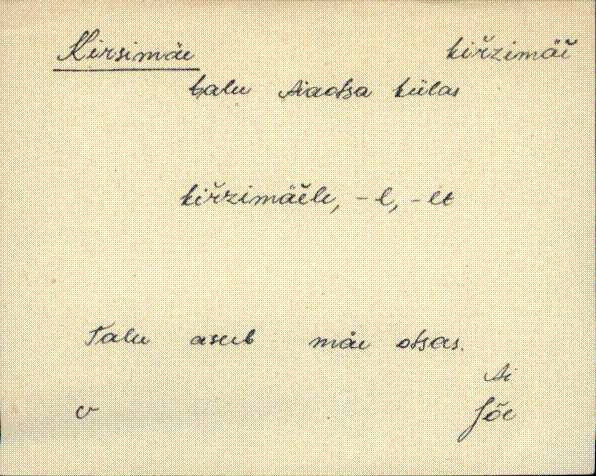 Kirsimäe kiřzimäè
talu Aiaotsa külas
kiřzimäèle, -l, -lt
Talu asub mäe otsas.
Ai
v Jõe